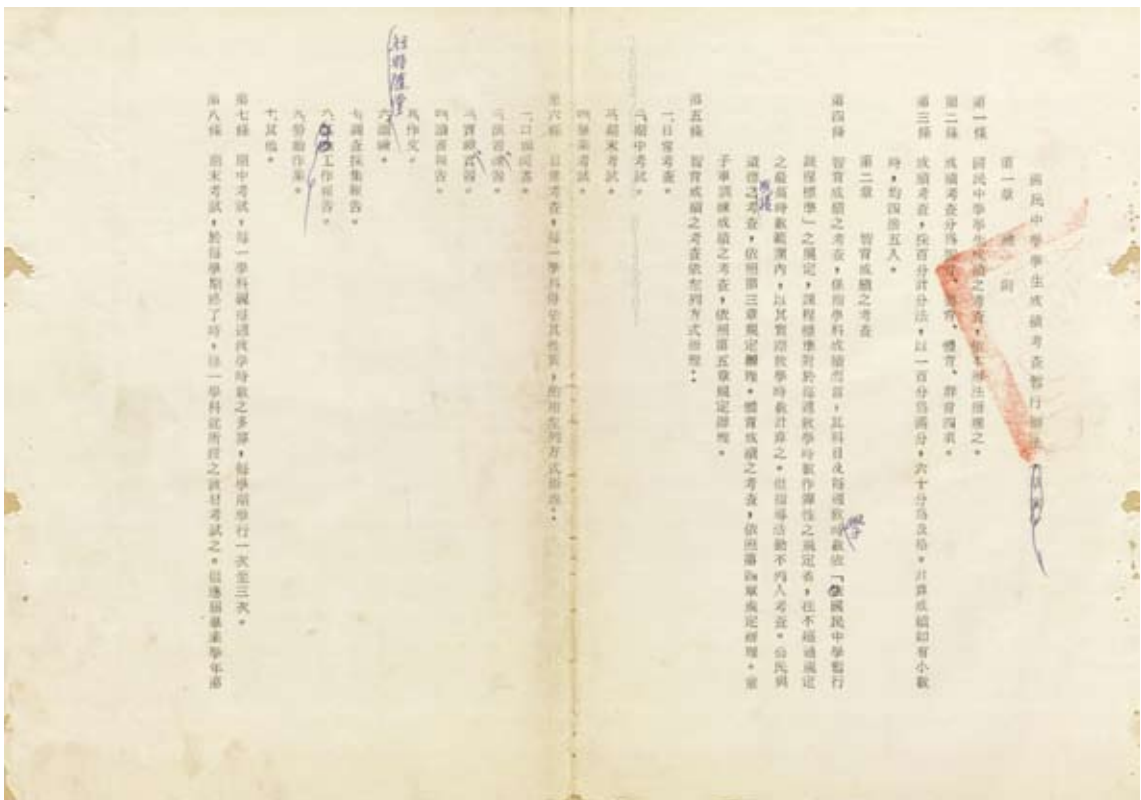 國民中學學生成績考查暫行辦法
第一章 總則
第一條 國民中學學生成績之考查,依本辦法辦理之。
第二條 成績考查分為德育、智育、體育、群育四項。
第三條 成績考查,採百分計分法,以一百分為滿分,六十分為及格。計算成績如有小數
時,均四捨五入。
第二章 智育成績之考查
第四條 智育成績之考查,係指學科成績而言,其科目及每週教學時數依「國民中學暫行
課程標準」之規定,課程標準對於每週教學時數作彈性之規定者,在不超過規定
之最高時數範圍內,以其實際教學時數計算之。但指導活動不列入考查。公民與
道德之考查,依照第三章規定辦理。體育成績之考查,依照第四章規定辦理。童
子軍訓練成績之考查,依照第五章規定辦理。
第五條 智育成績之考查依左列方式辦理:
一、日常考查。
二、期中考試。
三、期末考試。
四、畢業考試。
第六條 日常考查,每一學科得依其性質,酌用左列方式辦理:
一、口頭問答。
二、演習練習。
三、實驗實習。
四、讀書報告。
五、作文。
六、測驗。
七、調查採集報告。
八、工作報告。
九、勞動作業。
十、其他。
第七條 期中考試,每一學科視每週教學時數之多寡,每學期舉行一次至三次。
第八條 期末考試,於每學期終了時,每一學科就所授之教材考試之。但應屆畢業學年第